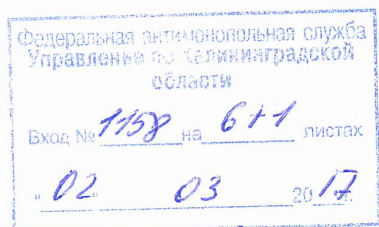 Федеральная антимонопольная служба
Управление по Калининградской
области
Вход № 1158 на 6+1 листах
"02" 03 2017г.